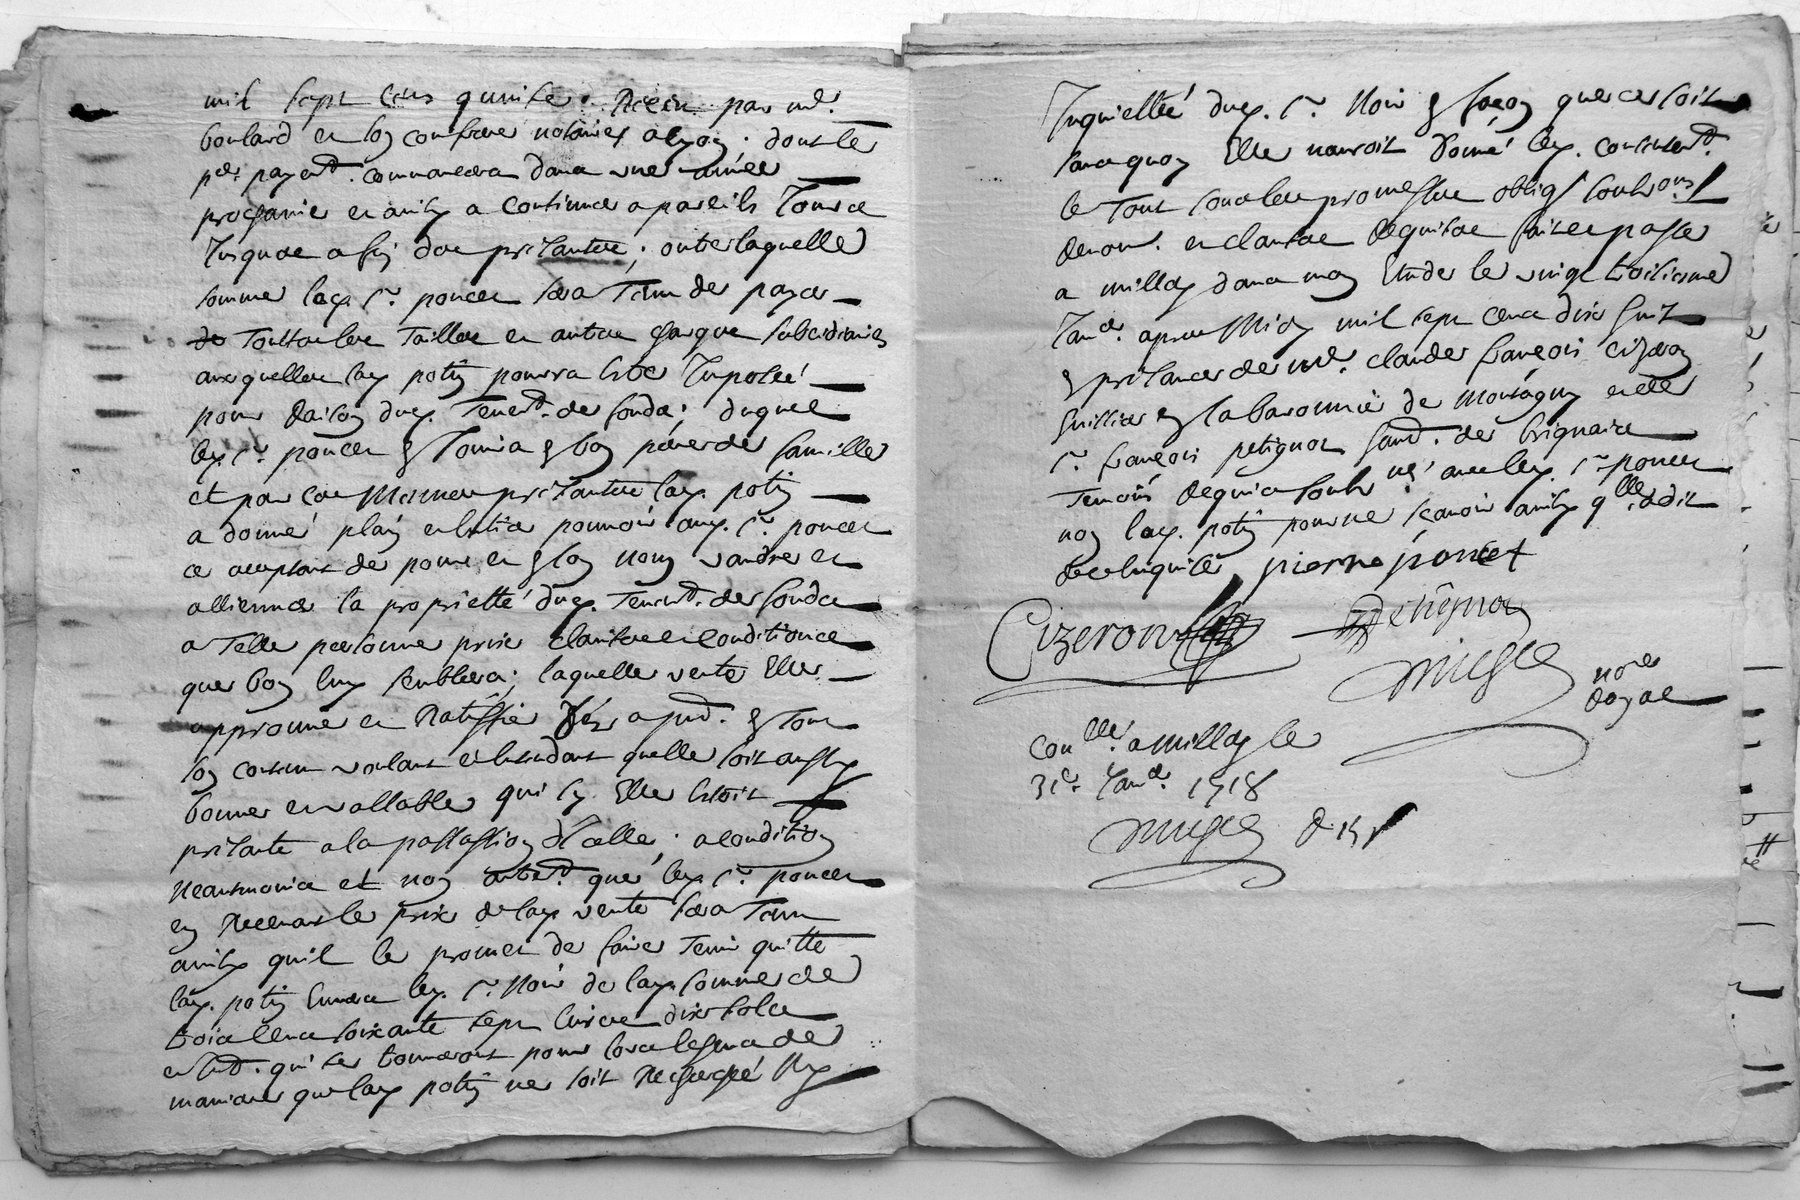 mil sept cens quinze. Receu par md.
boulard et so confrere notaires a lyon. dont le
per. payemt. commancera dans une année
prochaine et ainsy a continuer a pareils Jours
Jusques a fin des presantes; outre laquelle
somme lad. sr. poncet sera Tenu de payer
Touttes les Tailles et autres charges subcidiaires
auxquelles lad. potin pourra estre Imposée
pour raison dud. Tenemt. de fonds; duquel
led. sr. poncet Jouira en bon père de famille
et par ces Mesmes presantes lad. potin
a donné plain et entier pouvoir aud. sr. poncet
ce acceptant de pour et en son nom vandre et
allienner la proprietté dud. Tenemt. de fonds
a Telle personne prix clauses et conditions
que bon luy semblera; laquelle vente Elle
approuve et Ratiffie dez a pnt. en Tout
son contenu voulant et entendant quelle soit aussy
bonne et vallable que sy Elle estoit
presante a la passassion d'Icelle; a condition
neantmoins et non autremt. que led. sr. poncet
en Recevant le prix de lad. vente sera Tenu
ainsy quil le promet de faire Tenir quitte
lad. potin Envers led. sr. Noir de lad. somme de
trois cens soixante sept livres dix sols
et qui se trouveront pour lors eschus de
maniere que lad. potin ne soit Recherchée Ny
Inquiettée dud. sr. Noir en façon que ce soit
sans quoy Elle nauroit donné led. consentemt.
le Tout sous les promesses oblig. soubons.
renon. et clauses requises fait et passé
a millery dans mon Etude le vingt troisieme
Janer. apres Midy mil sept cens dix huit
en presance de Md. claude françois cizeron
huissier en la baronnie de Montagny et de
sr. françois petignot hant. de brignais
Temoins requis soubsnés avec led. sr. poncet
non lad. potin pour ne sçavoir ainsy qlle. a dit
de ce enquise pierre poncet
Cizeron Petignot
nore
royal
Conllé. a millery le
31e. Janer. 1718